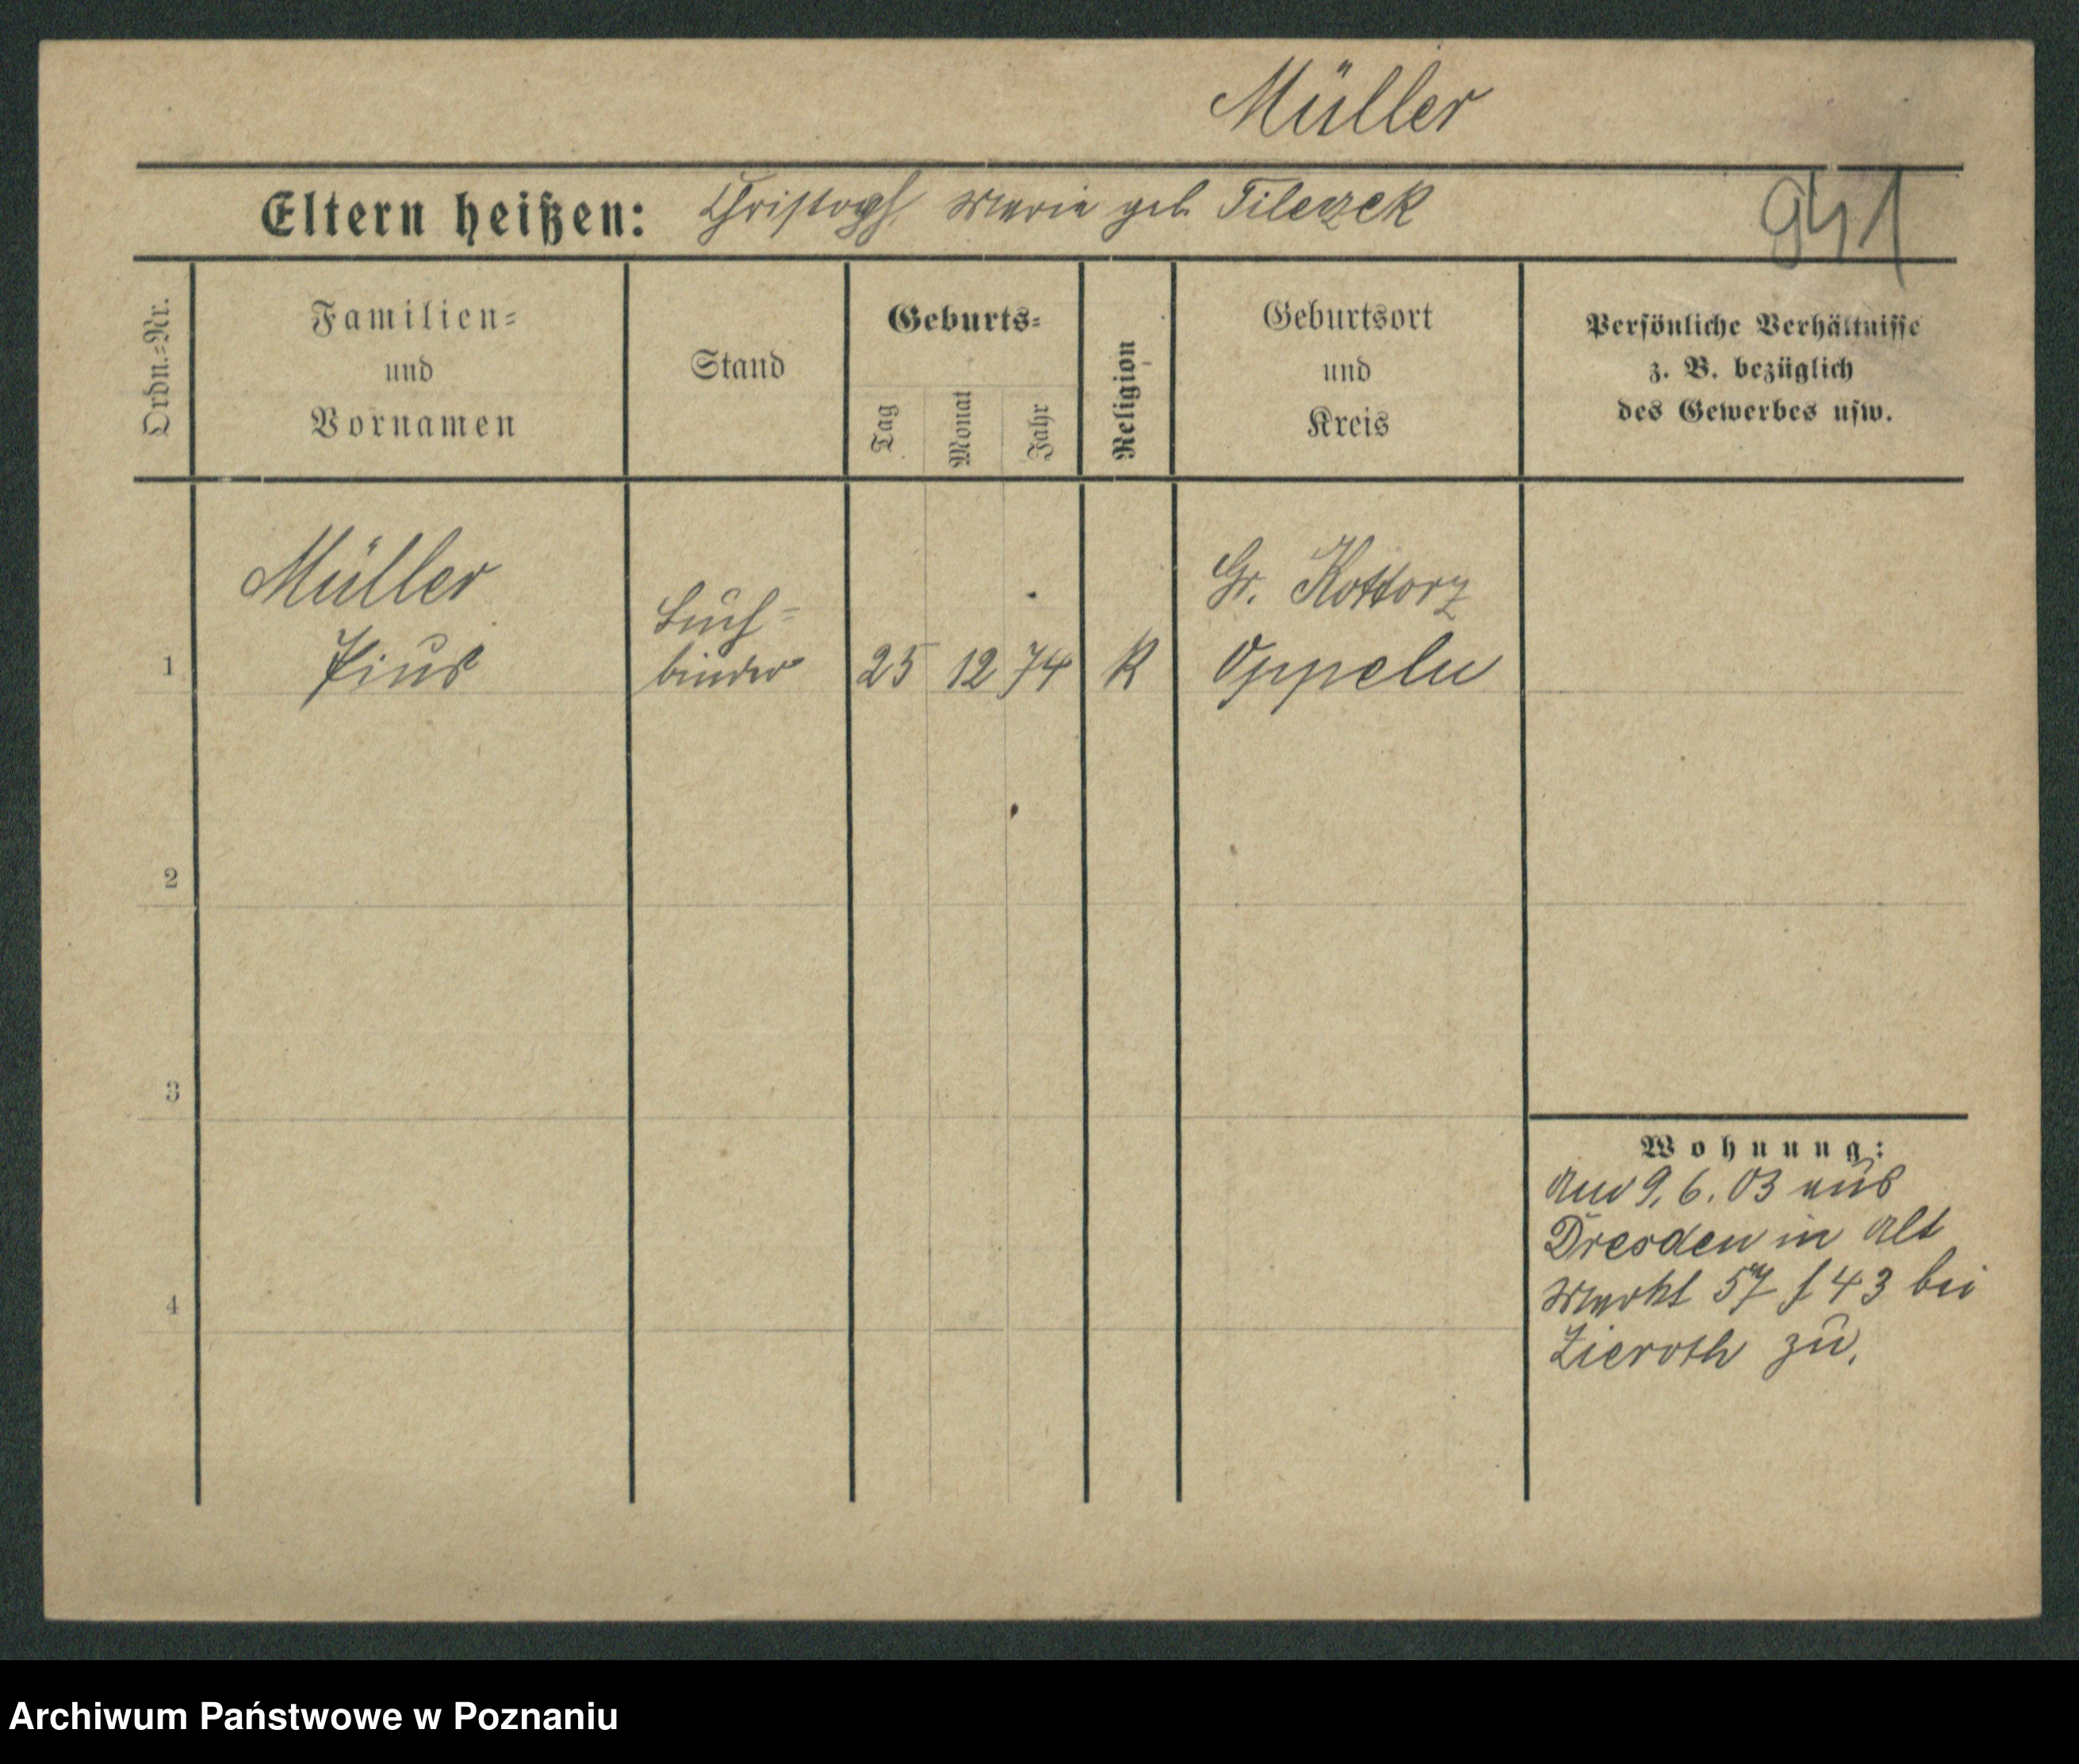 Müller
Eltern heißen: Christoph, Marie geb. Tilczek
941
Ordn.=Nr.
Familien=
und
Vornamen
Stand
Geburts=
Tag
Monat
Jahr
Religion
Geburtsort
und
Kreis
Persönliche Verhältnisse
z. B. bezüglich
des Gewerbes usw.
1
Müller
Pius
Buch=
binder
25 12 74
K
Gr. Kottorz
Oppeln
2
3
4
Wohnung:
Am 9.6.03 aus
Dresden in Alt
Markt 57 f 43 bei
Zieroth zu.
Archiwum Państwowe w Poznaniu